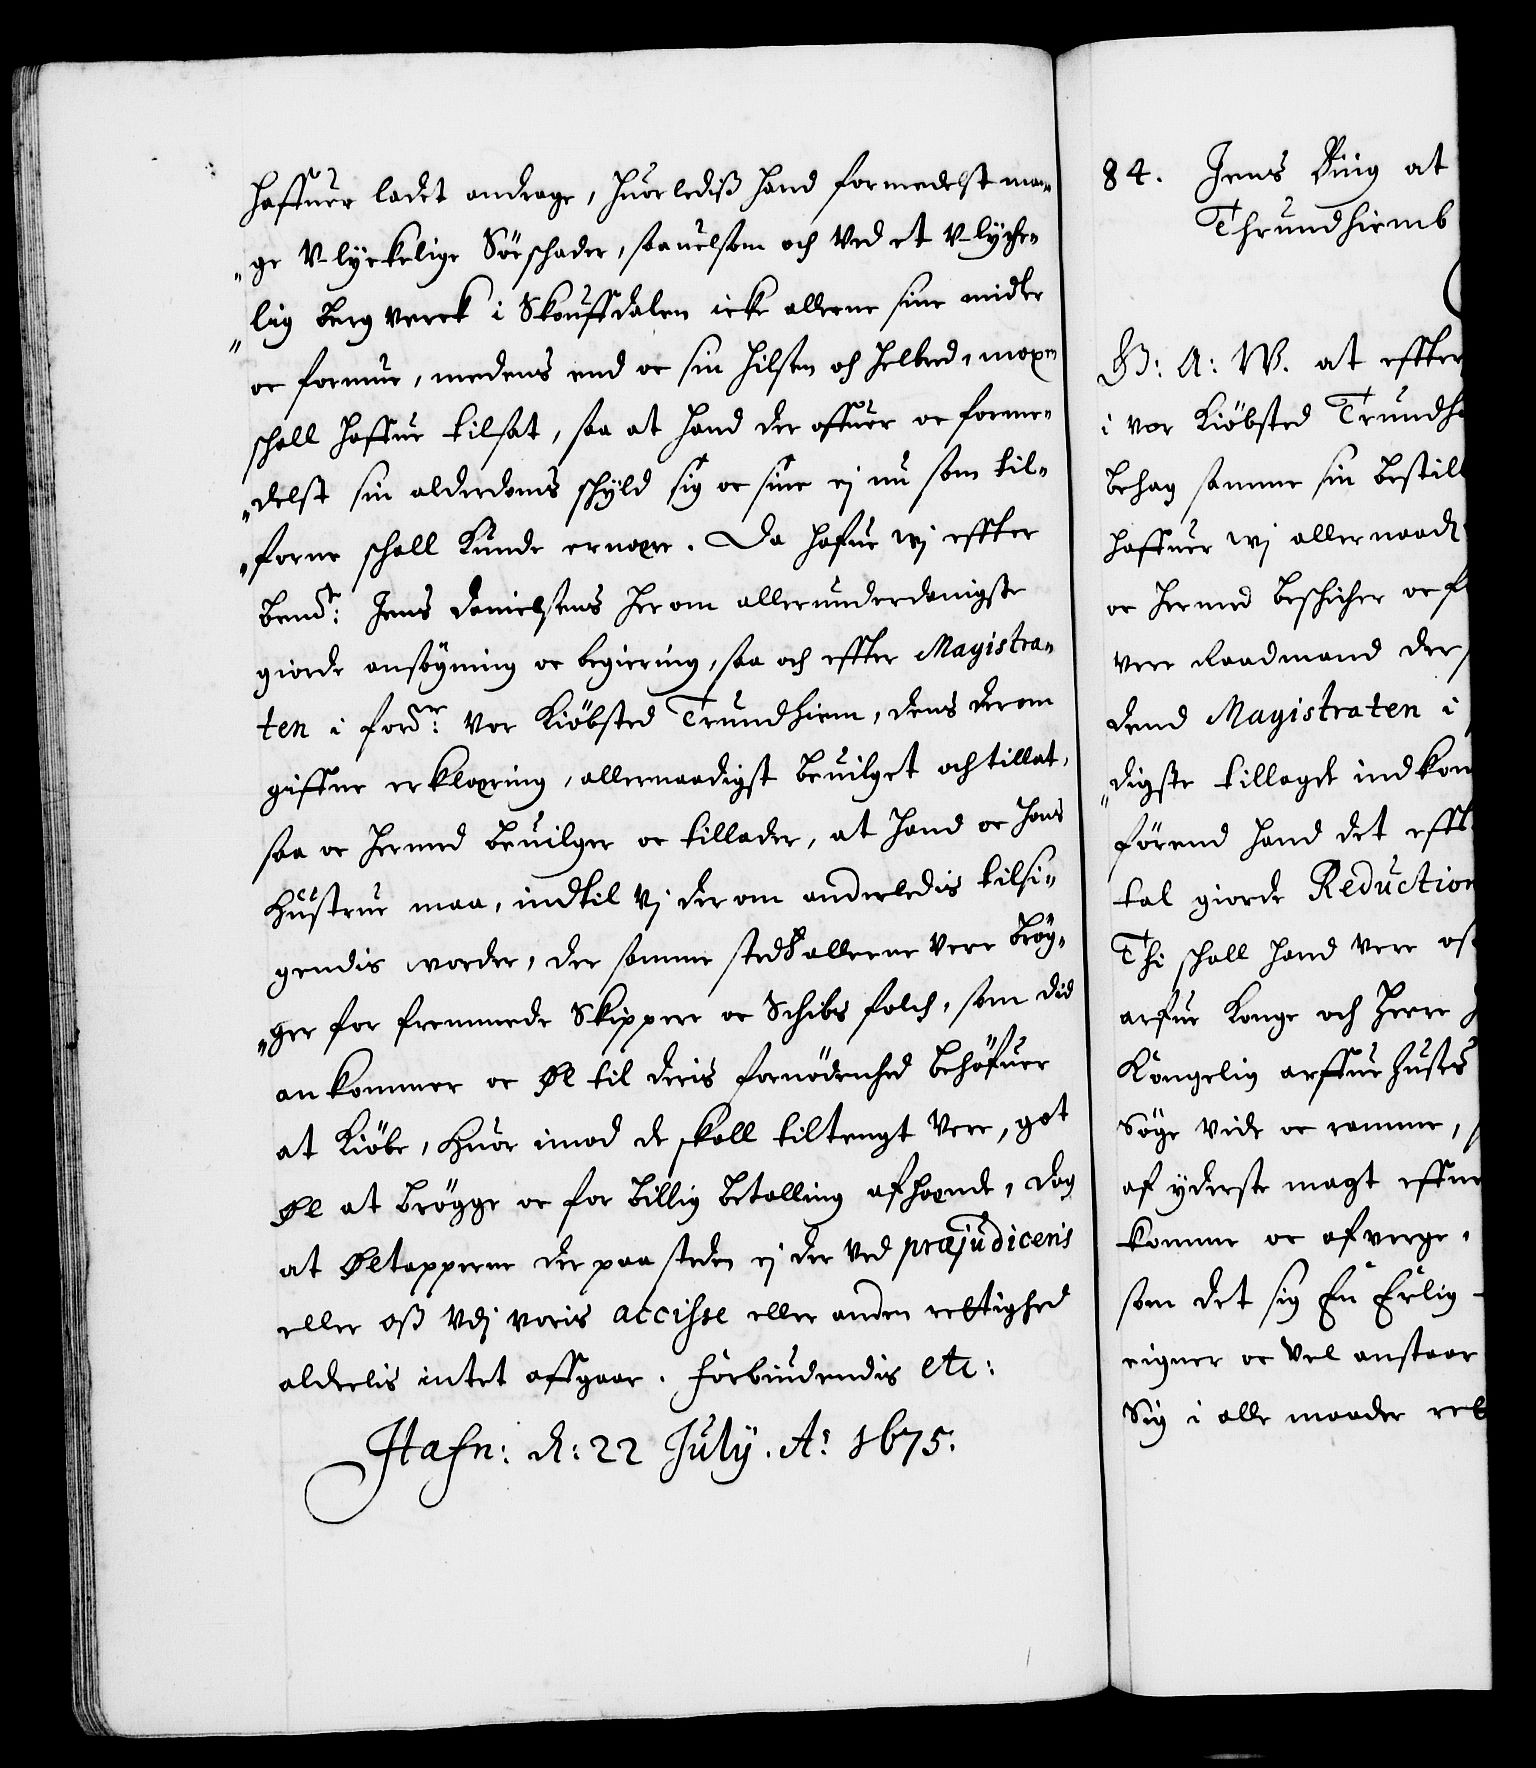 haffuer ladet andrage, huorlediß hand formedelst man-
„ge V-lyckelige Söeschader, saauelsom och Ved et V-lyche-
„lig Berg verck i Skouffdalen icke alleene sine midler
oc formue, medens end oc sin hilsen och helbred, moxen
schall haffue tilsat, saa at hand der offuer oc forme-
„delst sin alderdoms schyld sig oc sine ej nu som til-
„forne schall kunde ernære. Da hafue wj effter
bemt: Jens Danielsens herom allerunderdanigste
giorde ansögning oc begiering, saa och effter Magistra-
ten i fordr: vor Kiöbsted Trundhiem, dens derom
giffne erklæring, allernaadigst beuilget och tillat,
saa oc hermed beuilger oc tillader, at hand oc hans
Hustrue maa, indtil Vj der om anderledis tilsi-
gendis worder, der samme steds alleene vere brög-
„ger for fremmede Skippere oc Schibs folch, som did
ankommer oc Øl til deris fornödenhed behöfuer
at Kiöbe, huor imod de skall tiltengt vere, got
Øl at brögge oc for billig betalling afhænde, dog
at Øltapperne der paa steden ej der ved præjudiceris
eller oß Vdj voris accisse eller anden rettighed
alderlis intet affgaar. Forbiudendis etc:
Hafn: d: 22 July. Ao 1675.
84. Jens at
Thrundhiemb
G: A: W. at effter
i vor Kiöbsted Trundh
behag samme sin bestil
haffuer wj allernaad
oc hermed beschicher oc f
vere Raadmand der
dend Magistraten i
„digste tillagde indkom
förend hand det efft
tal giorde Reduction
Thi schall hand vere os
arfue Konge och Herre
Kongelig arffue huses
Söge vide oc ramme,
af yderste magt effne
komme oc afverge,
som det sig En Erlig
eigner oc vel anstaar
Sig i alle maader ret